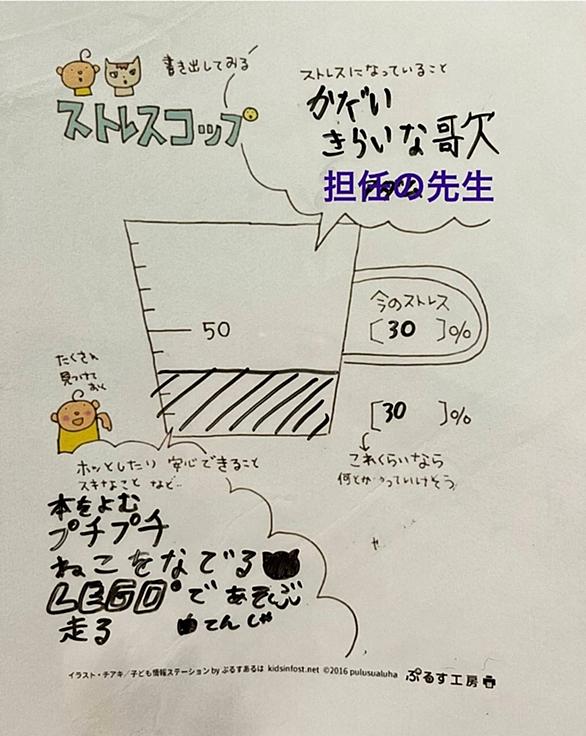 書き出してみる
ストレスコップ
ストレスになっていること
かだい
きらいな歌
担任の先生
50
今のストレス
[30]%
[30]%
これくらいなら
何とかやっていけそう
たくさん
見つけて
おく
ホッとしたり 安心できること
スキなこと など…
本をよむ
プチプチ
ねこをなでる
LEGOであそぶ
走る
てんしゃ
イラスト・チアキ/子ども情報ステーション by ぷるすあるは kidsinfost.net ©2016 pulusualuha ぷるす工房